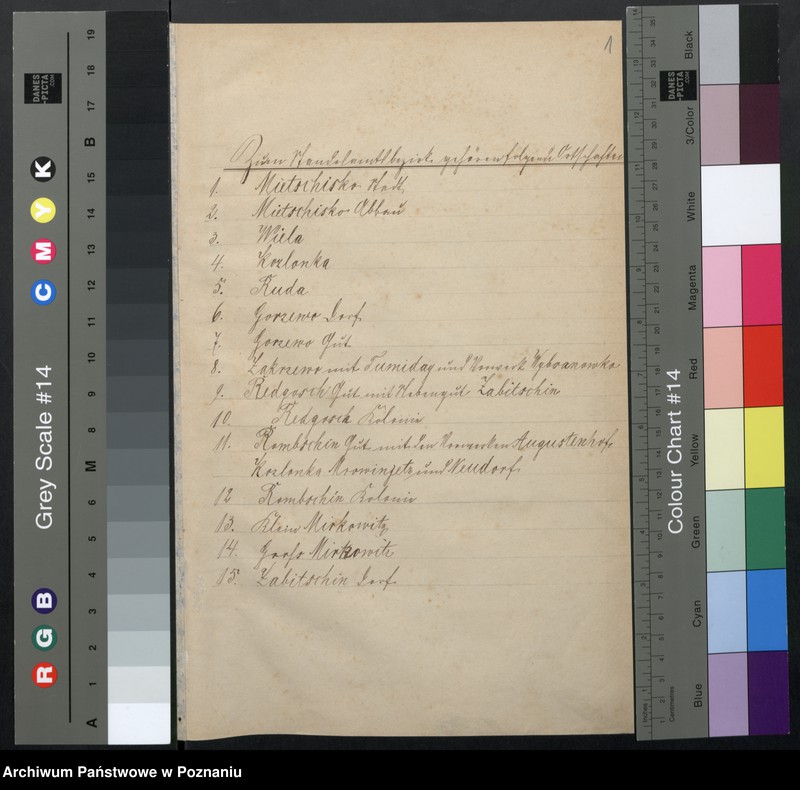 1
Zum Standesamtsbezirk gehören folgende Ortschaften
1. Mietschisko Stadt
2. Mietschisko Abbau
3. Wiela
4. Kozlonka
5. Ruda
6. Gorzewo Dorf
7. Gorzewo Gut
8. Zakrzewo mit Tumiday und Vorwerk Wybranowko
9. Redgosch Gut mit Nebengut Zabitschin
10. Redgosch Kolonie
11. Rombschin Gut mit den Vorwerken Augustenhof,
Kozlonka Mrowinjetz und Neudorf
12 Rombschin Kolonie
13. Klein Mirkowitz
14. Groß Mirkowitz
15. Zabitschin Dorf
Grey Scale #14
DANES
-PICTA
.COM
R G B
C M Y K
A 1 2 3 4 5 6 M 8 9 10 11 12 13 14 15 B 17 18 19
Colour Chart #14
DANES
-PICTA
.COM
Black
3/Color
White
Magenta
Red
Yellow
Green
Cyan
Blue
Inches
Centimetres
Archiwum Państwowe w Poznaniu